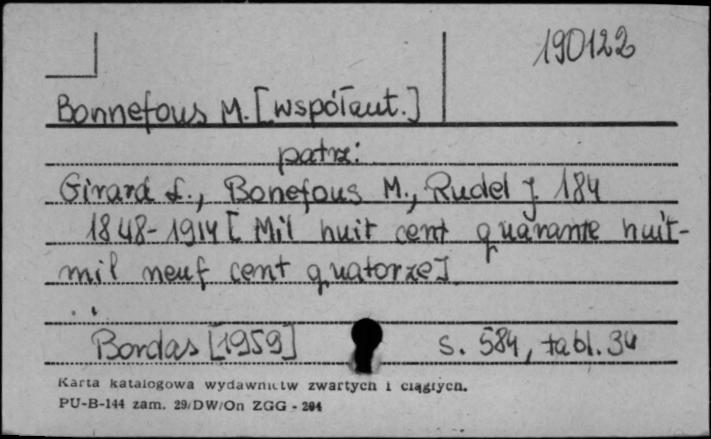 190122
Bonnefous M. [współaut.]
patrz:
Girard L., Bonefous M., Rudel J. 184
1848-1914 [Mil huit cent quarante huit-
mil neuf cent quatorze]
Bordas [1959] s. 584, tabl. 34
Karta katalogowa wydawnictw zwartych i ciągłych.
PU-B-144 zam. 29/DW/On ZGG - 204